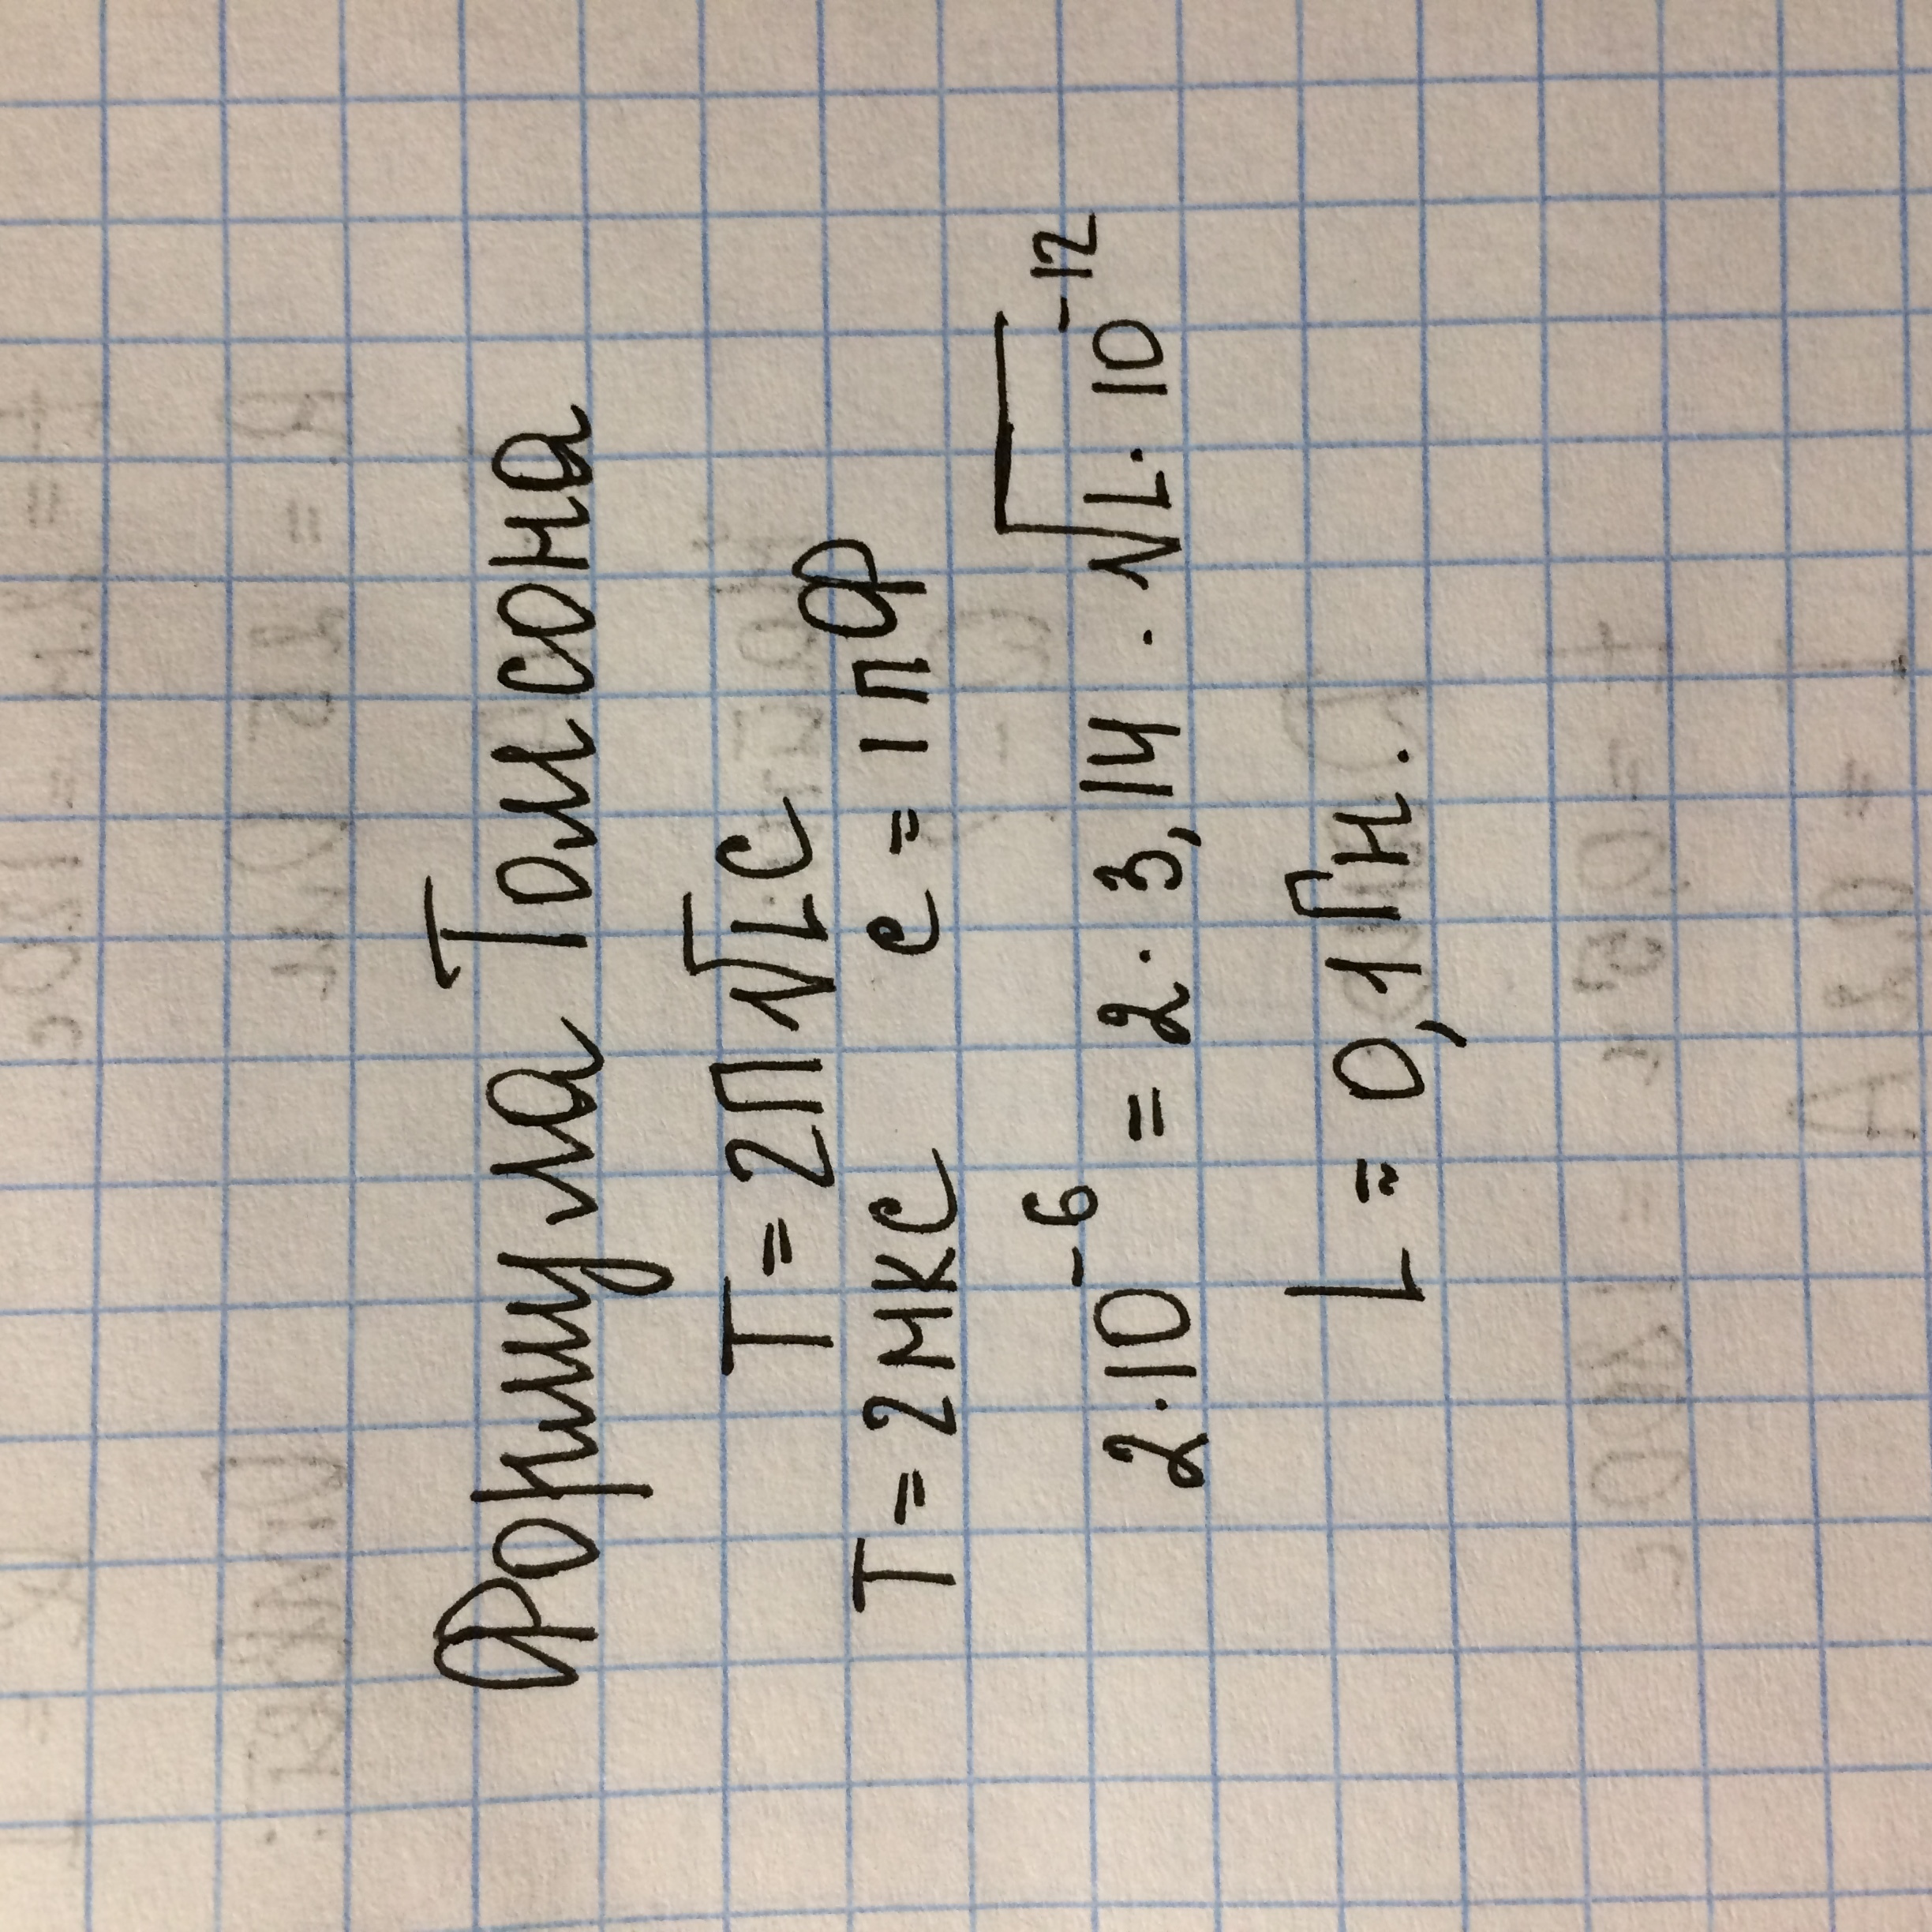 Формула Томсона
T = 2П√LC
T = 2мкс   c = 1пФ
2·10⁻⁶ = 2·3,14·√L·10⁻¹²
L = 0,1Гн.